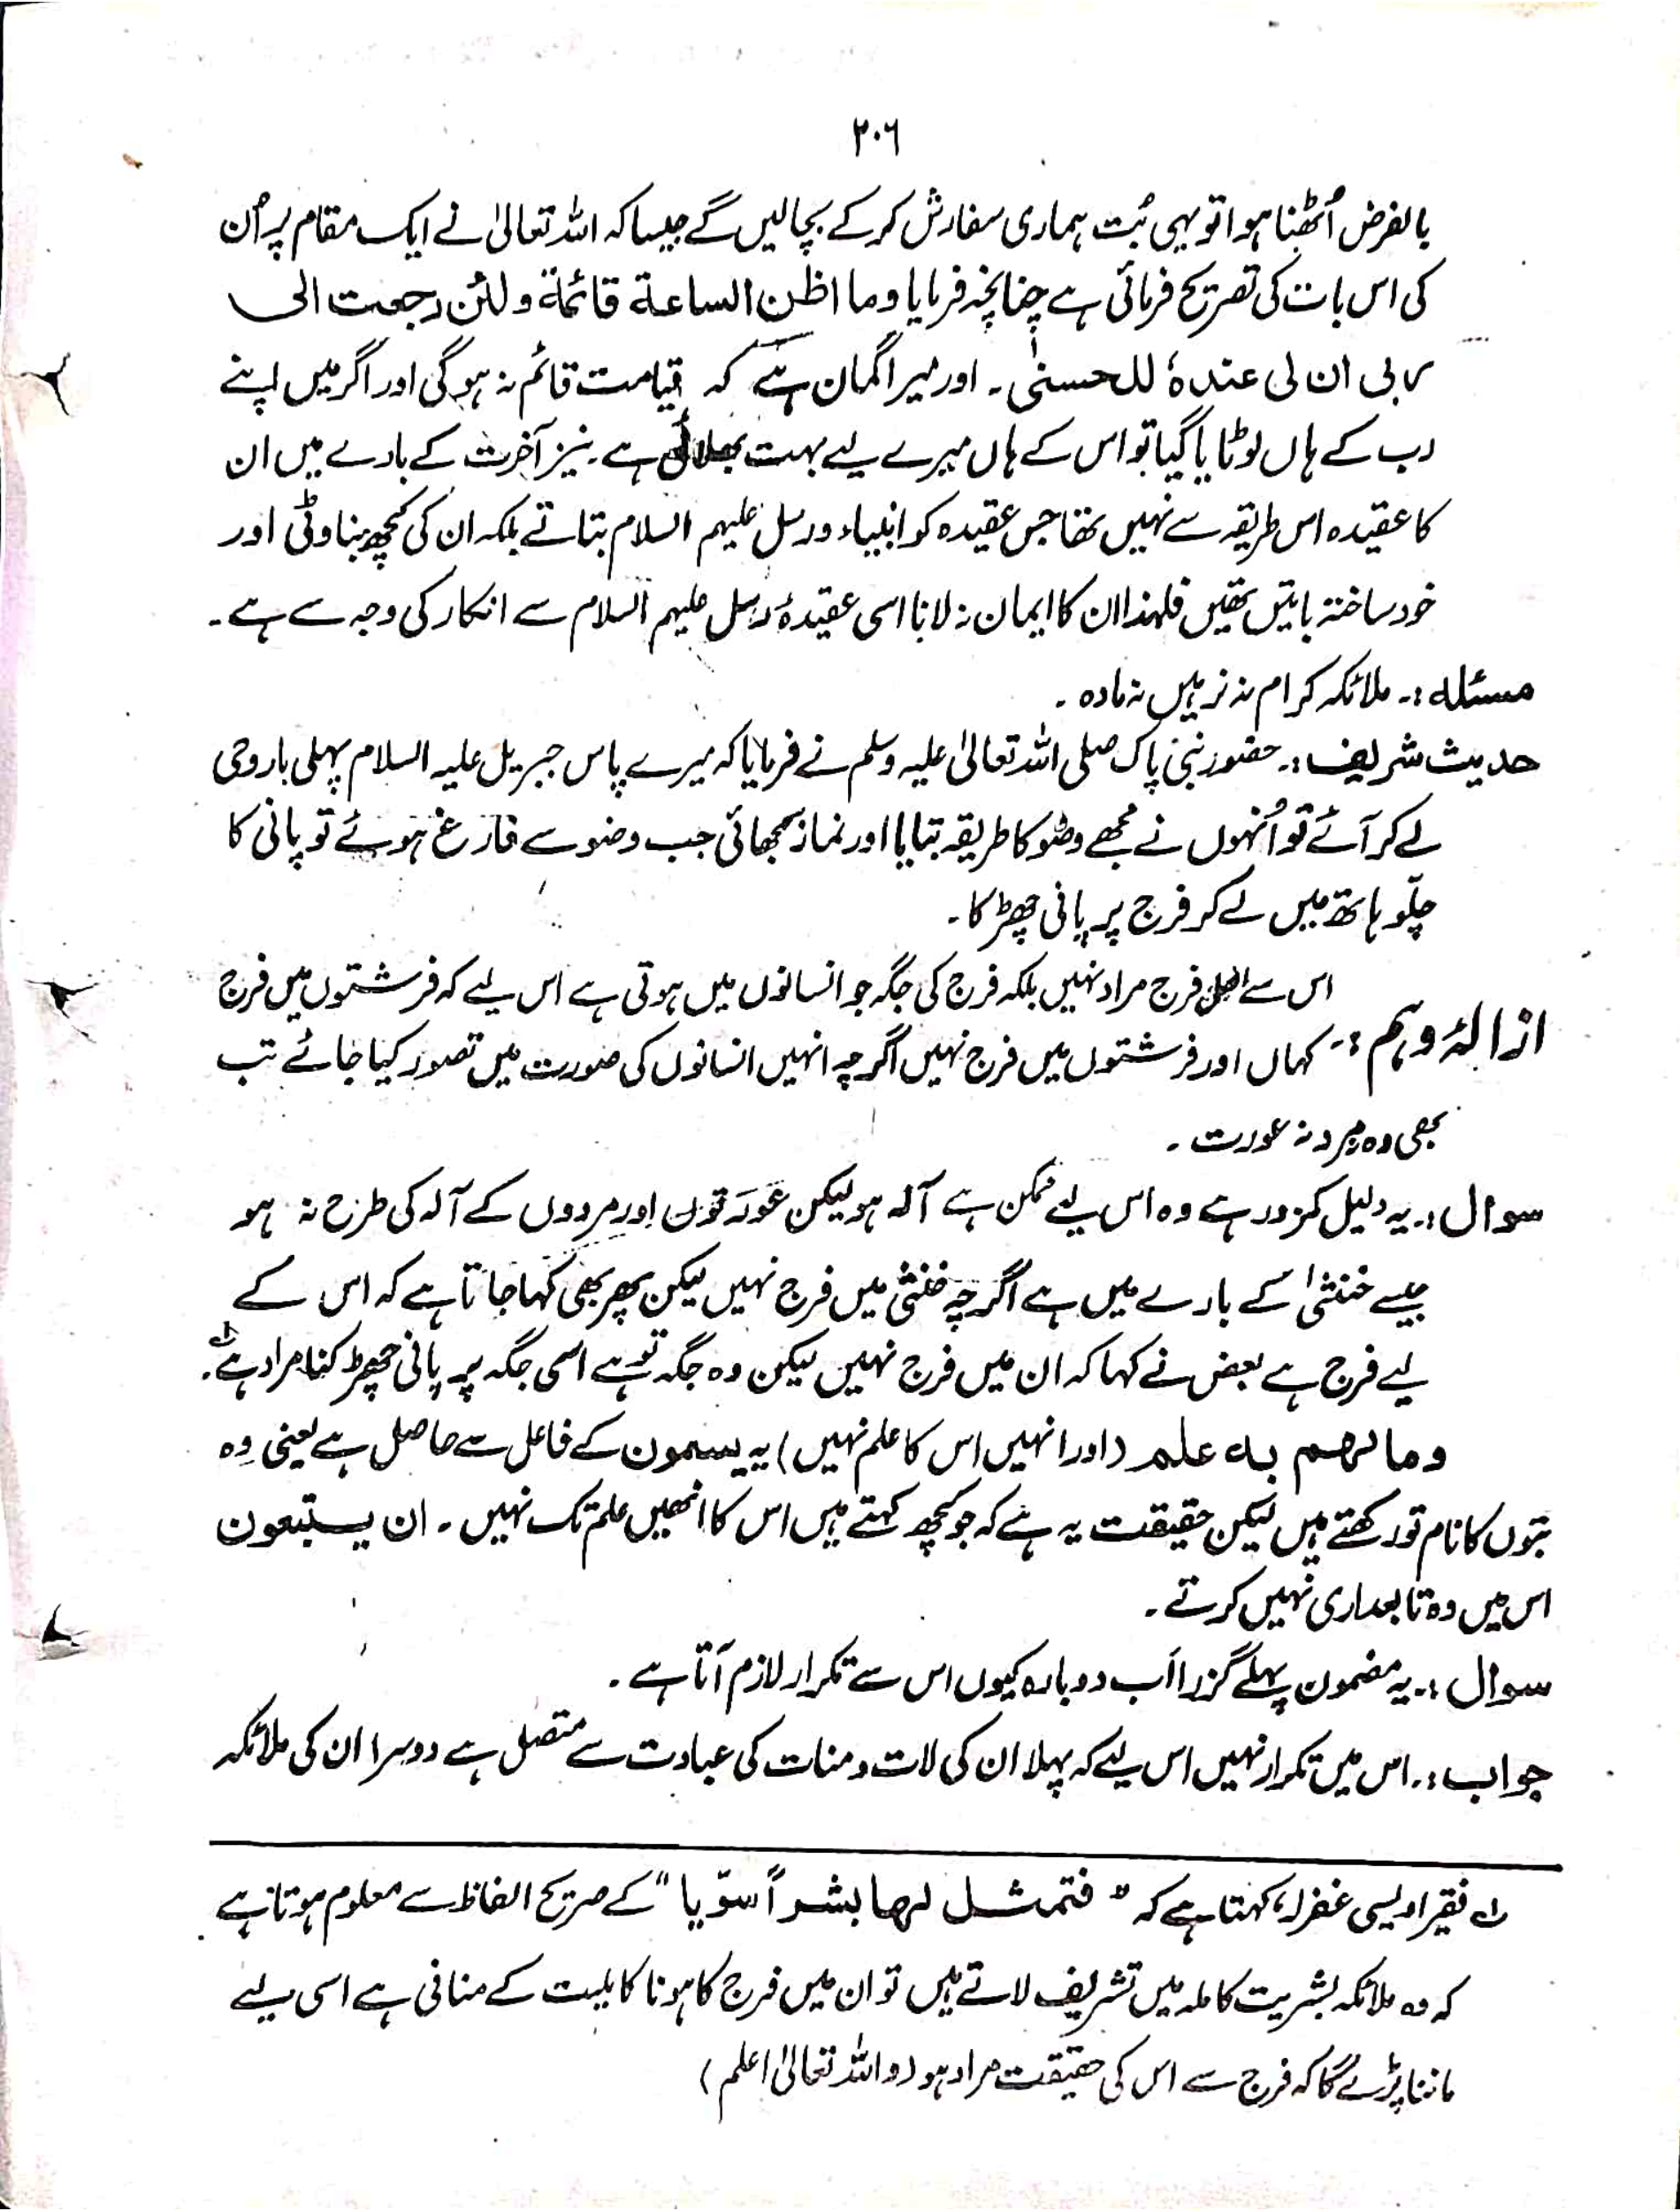 ۲۰۶
بالفرض اُٹھنا ہوا تو یہی بُت ہماری سفارش کر کے بچا لیں گے جیسا کہ اللہ تعالیٰ نے ایک مقام پر اُن
کی اس بات کی تصریح فرمائی ہے چنانچہ فرمایا وما اظن الساعة قائمة ولئن رجعت الی
ربی ان لی عندہٗ للحسنیٰ ۔ اور میرا گمان ہے کہ قیامت قائم نہ ہوگی اور اگر میں اپنے
رب کے ہاں لوٹایا گیا تو اس کے ہاں میرے لیے بہت بھلائی ہے ۔ نیز آخرت کے بارے میں ان
کا عقیدہ اس طریقہ سے نہیں تھا جس عقیدہ کو انبیاء ورسل علیہم السلام بتاتے بلکہ ان کی کچھ بناوٹی اور
خود ساختہ باتیں تھیں فلہٰذا ان کا ایمان نہ لانا اسی عقیدۂ رسل علیہم السلام سے انکار کی وجہ سے ہے ۔
مسئلہ :۔ ملائکہ کرام نہ نر ہیں نہ مادہ ۔
حدیث شریف :۔ حضور نبی پاک صلی اللہ تعالیٰ علیہ وسلم نے فرمایا کہ میرے پاس جبریل علیہ السلام پہلی بار وحی
لے کر آئے تو اُنہوں نے مجھے وضو کا طریقہ بتایا اور نماز سمجھائی جب وضو سے فارغ ہوئے تو پانی کا
چلّو ہاتھ میں لے کر فرج پر پانی چھڑکا ۔
اس سے اصل فرج مراد نہیں بلکہ فرج کی جگہ جو انسانوں میں ہوتی ہے اس لیے کہ فرشتوں میں فرج
ازالۂ وہم :۔ کہاں اور فرشتوں میں فرج نہیں اگرچہ انہیں انسانوں کی صورت میں تصور کیا جائے تب
بھی وہ مرد نہ عورت ۔
سوال :۔ یہ دلیل کمزور ہے وہ اس لیے ممکن ہے آلہ ہو لیکن عورتوں اور مردوں کے آلہ کی طرح نہ ہو
جیسے خنثیٰ کے بارے میں ہے اگرچہ خنثیٰ میں فرج نہیں لیکن پھر بھی کہا جاتا ہے کہ اس کے
لیے فرج ہے بعض نے کہا کہ ان میں فرج نہیں لیکن وہ جگہ تو ہے اسی جگہ پر پانی چھڑکنا مراد ہے لہ ۔
وما لہم بہ علم (اور انہیں اس کا علم نہیں) یہ یسمون کے فاعل سے حاصل ہے یعنی وہ
بتوں کا نام تو رکھتے ہیں لیکن حقیقت یہ ہے کہ جو کچھ کہتے ہیں اس کا انھیں علم تک نہیں ۔ ان یستبعون
اس میں وہ تابعداری نہیں کرتے ۔
سوال :۔ یہ مضمون پہلے گزرا اَب دوبارہ کیوں اس سے تکرار لازم آتا ہے ۔
جواب :۔ اس میں تکرار نہیں اس لیے کہ پہلا ان کی لات ومنات کی عبادت سے متصل ہے دوسرا ان کی ملائکہ
لہ فقیر اویسی غفرلہٗ کہتا ہے کہ " فتمثل لہا بشراً سوّیا " کے صریح الفاظ سے معلوم ہوتا ہے
کہ وہ ملائکہ بشریت کاملہ میں تشریف لاتے ہیں تو ان میں فرج کا ہونا کاملیت کے منافی ہے اسی لیے
ماننا پڑے گا کہ فرج سے اس کی حقیقت مراد ہو (واللہ تعالیٰ اعلم)